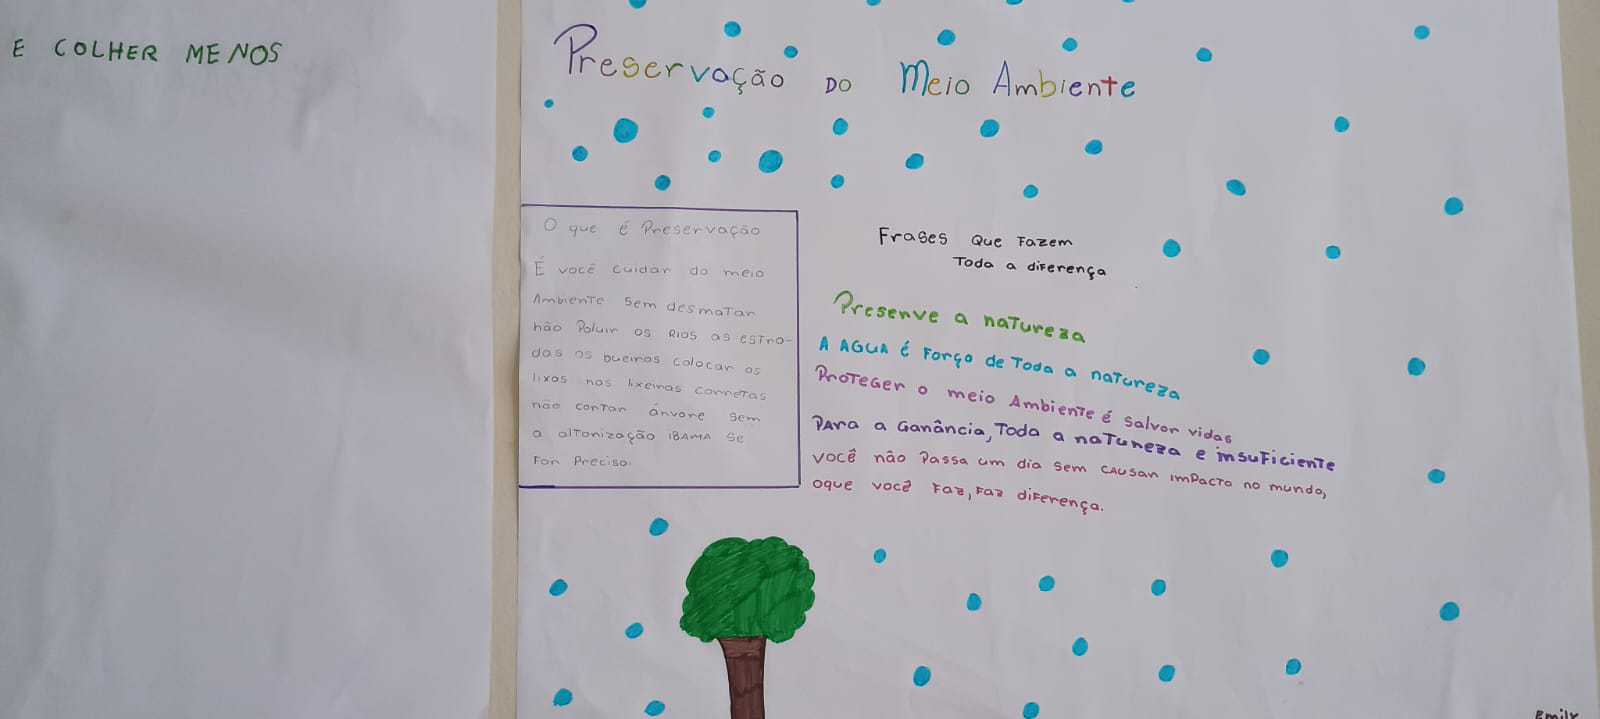 E COLHER MENOS
Preservação do Meio Ambiente
O que é Preservação
É você cuidar do meio
Ambiente sem desmatar
não Poluir os Rios as estra-
das os bueiros colocar os
lixos nas lixeiras corretas
não cortar árvore sem
a altorização iBAMA se
for Preciso.
Frases Que Fazem
Toda a diferença
Preserve a natureza
A AGUA é força de Toda a natureza
Proteger o meio Ambiente é salvar vidas
Para a Ganância, Toda a natureza e insuficiente
você não Passa um dia sem causar impacto no mundo,
oque você Faz, Faz diferença.
Emily